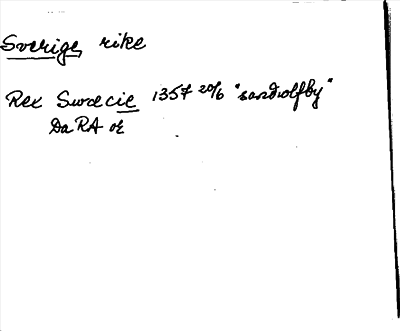 Sverige, rike
Rex Swecie 1357 20/6 "sandwlfby"
DaRA or